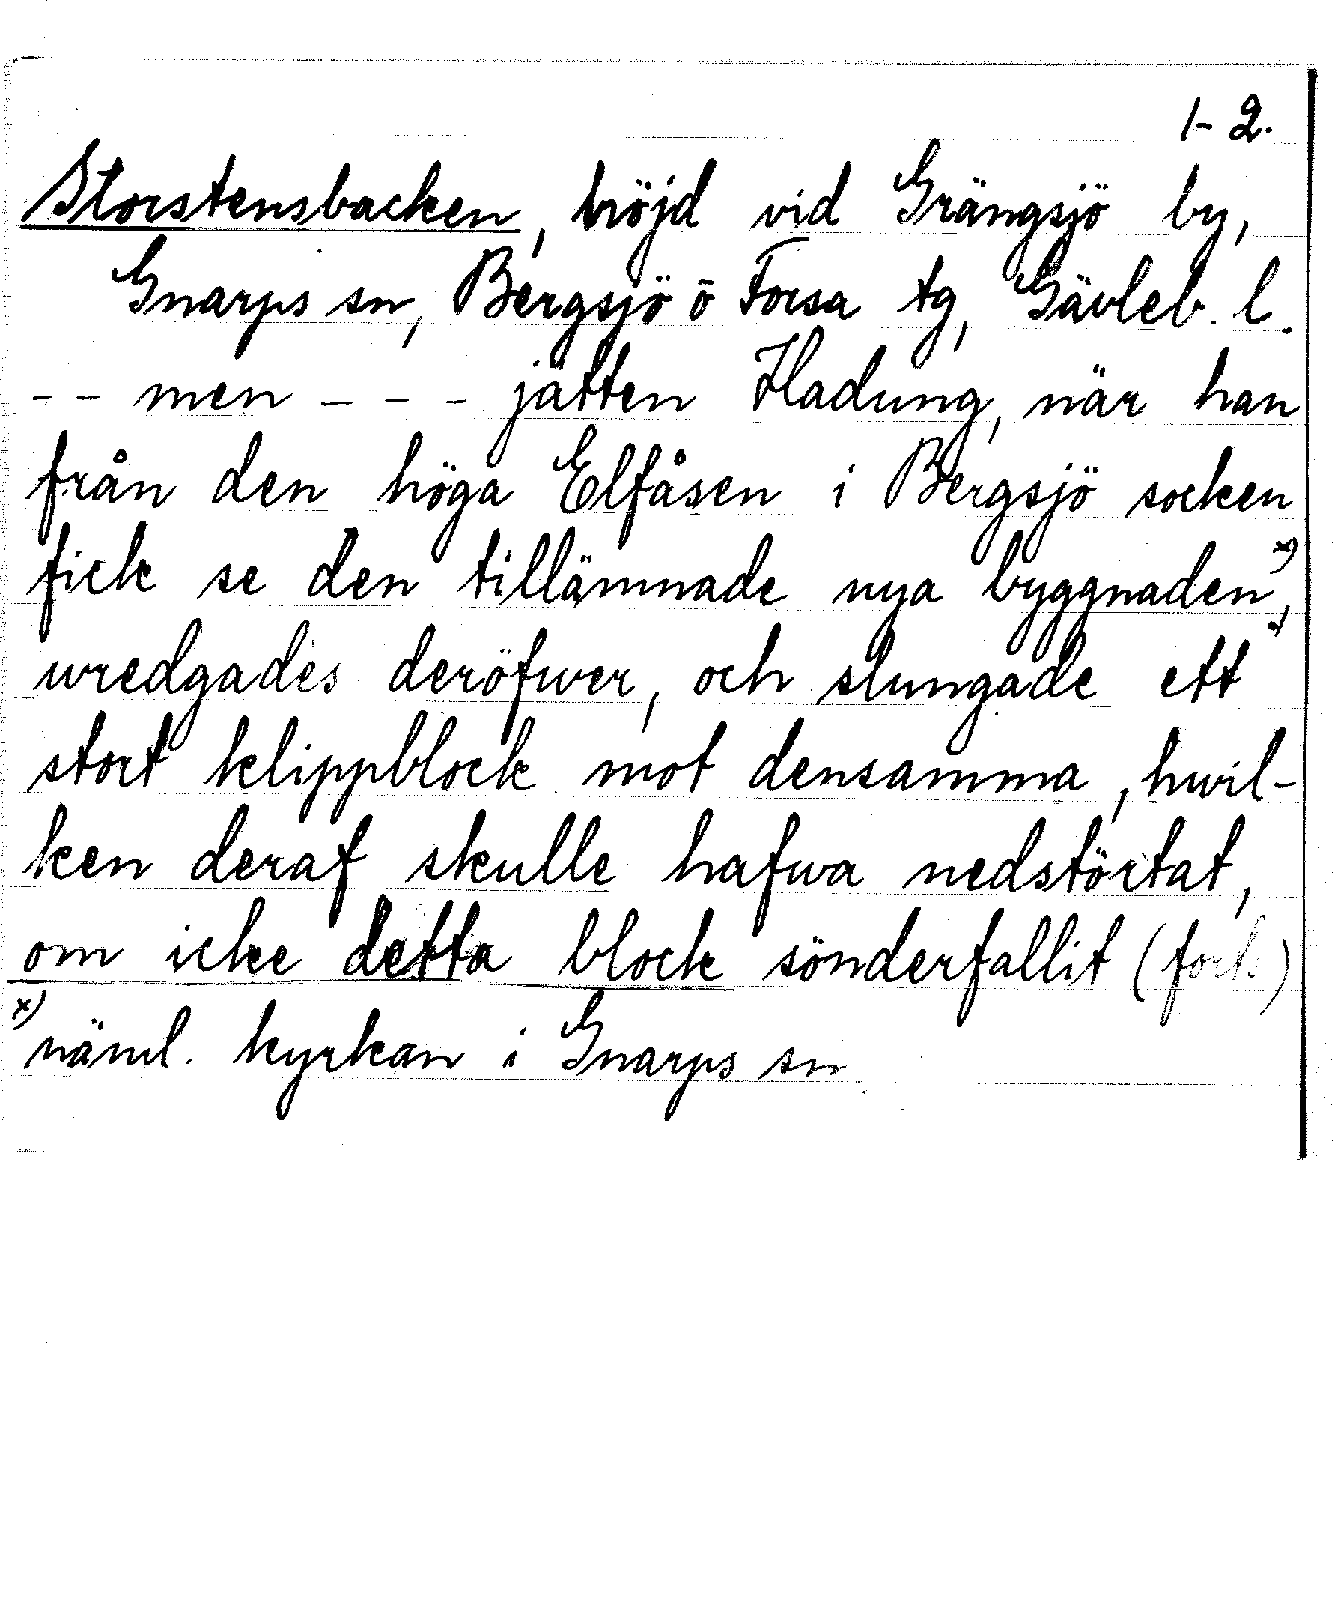 1-2.
Storstensbacken, höjd vid Grängsjö by,
Gnarps sn, Bergsjö o Forsa tg, Gävleb. l.
-- men --- jätten Hadung, när han
från den höga Elfåsen i Bergsjö socken
fick se den tillämnade nya byggnaden x),
wredgades deröfwer, och slungade ett
stort klippblock mot densamma, hwil-
ken deraf skulle hafwa nedstörtat,
om icke detta block sönderfallit (forts)
x) näml. kyrkan i Gnarps sn